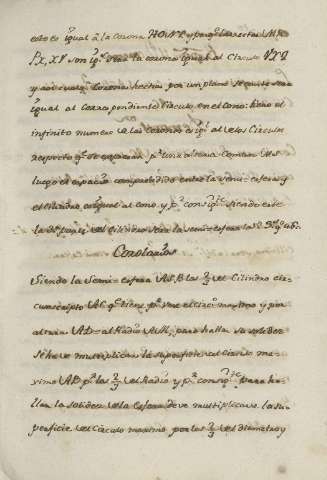 esto es igual â la corona HONI, y porq. las rectas MR
PX, XV son ig.s sera la corona igual al Circulo VXT
y asi cualq.r corona hecha por un plano seq.te sera
igual al correspondiente Circulo en el Cono: luego el
infinito numero de las coronas es ig.l al de los Circulos
respecto q.e se espacian p.r una altura comun
luego el espacio comprehendido entre la semi-esfera y
el Cilindro es igual al cono y p.r consig.te siendo este
la 3.a parte del Cilindro sera la semi-esfera las 2.
Corolarios
Siendo la Semi-esfera ASB las 2/3 del Cilindro cir-
cunscripto AC q.e tiene p.r vase el circ.o maximo y por
altura AD = al Radio para hallar su solidez
se ha de multiplicar la superficie del Circulo ma-
ximo AB p.r los 2/3 del Radio y p.r consig.te para ha-
llar la solidez de la esfera deve multiplicarse la su-
perficie del Circulo maximo por los 2/3 del diametro y